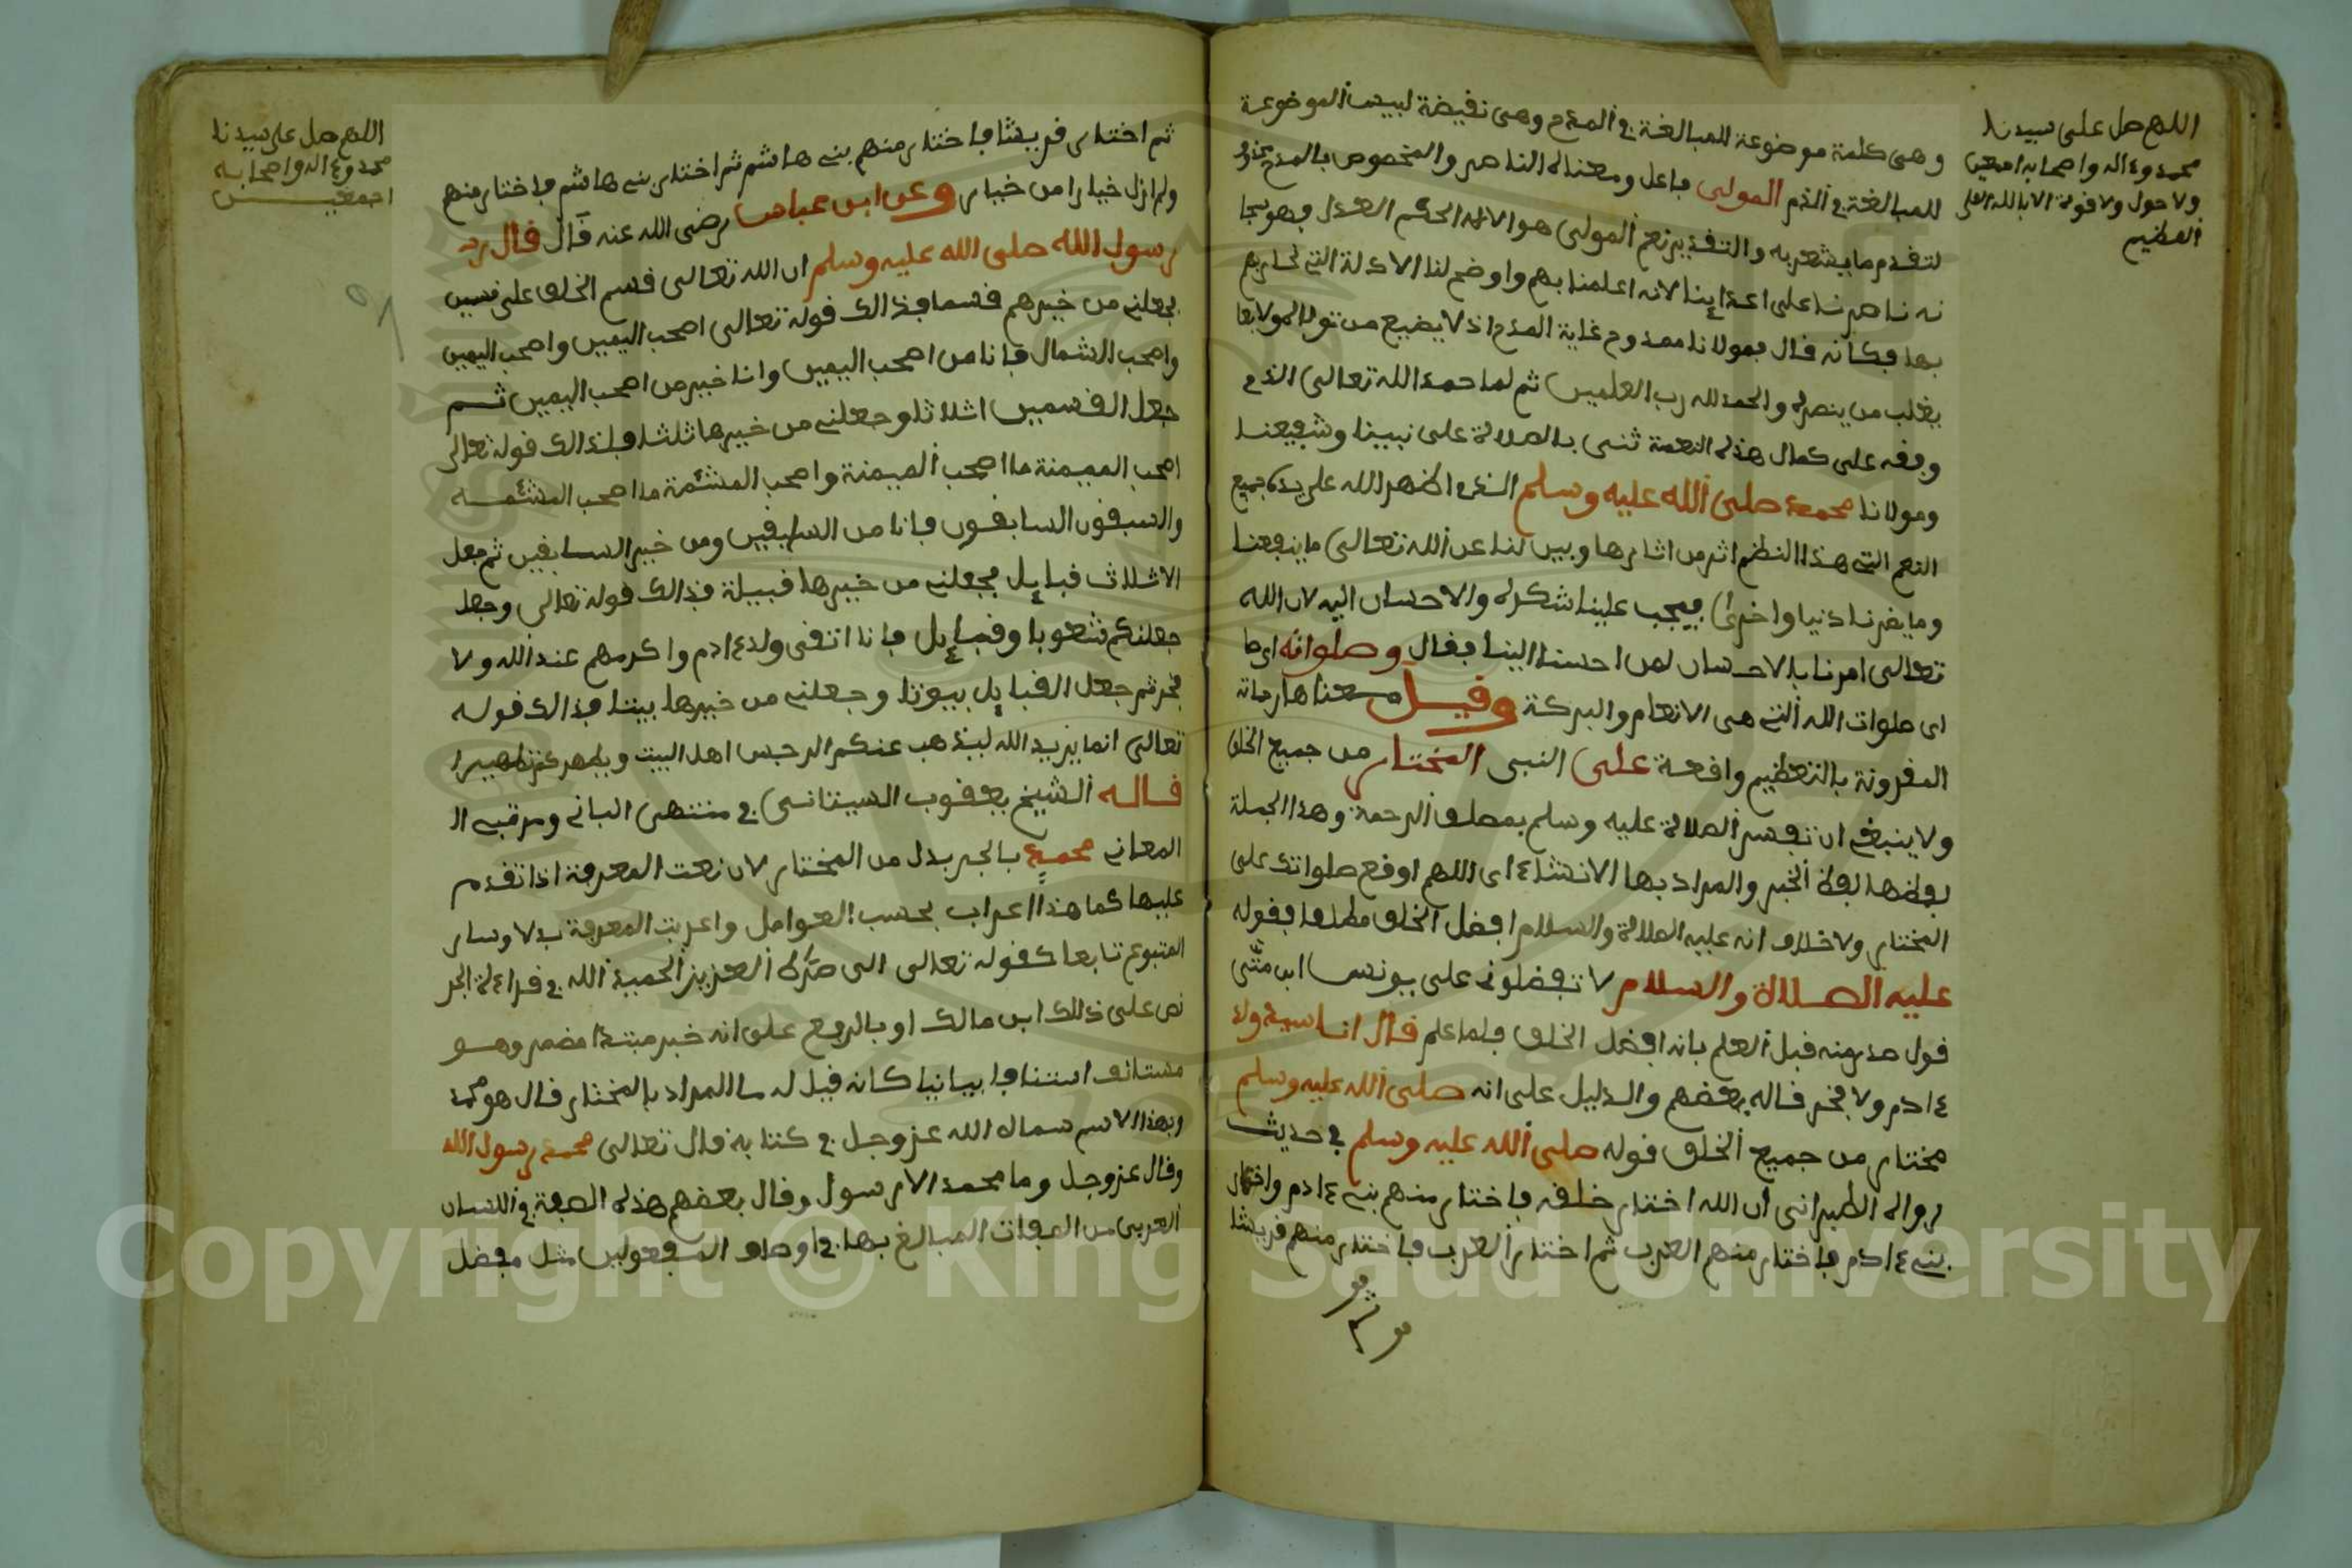 اللهم صل على سيدنا
محمد وءاله واصحابه اجمعين
ولا حول ولا قوة الا بالله العلى
العظيم
وهى كلمة موضوعة للمبالغة في المدح وهى نقيضة لبيس الموضوعة
للمبالغة في الذم المولى فاعل ومعناه الناصر والمخصوص بالمدح محذوف
لتقدم ما يشعر به والتقدير نعم المولى هو الاله الحكم العدل فهو سبحا
نه ناصرنا على اعداينا لانه اعلمنا بهم واوضح لنا الادلة التي نحاربهم
بها فكانه قال فمولانا ممدوح غاية المدح اذ لا يضيع من تولاه المولا بما
يغلب من ينصره والحمد لله رب العلمين ثم لما حمد الله تعالى الذي
وفقه على كمال هذه النعمة ثنى بالصلاة على نبينا وشفيعنا
ومولانا محمد صلى الله عليه وسلم الذي اظهر الله على يده جميع
النعم التي هذا النظم اثر من اثارها وبين لنا عن الله تعالى ما ينفعنا
وما يضرنا دنيا واخرى فيجب علينا شكره والاحسان اليه لان الله
تعالى امرنا بالاحسان لمن احسن الينا فقال وصلواته
اى صلوات الله التي هى الانعام والبركة وقيل معناها رحماته
المقرونة بالتعظيم واقعة على النبى المختار من جميع الخلق
ولا ينبغي ان تفسر الصلاة عليه وسلم بمطلق الرحمة وهذا الجملة
لفظها لفظ الخبر والمراد بها الانشاء اى اللهم اوقع صلواتك على
المختار ولا خلاف انه عليه الصلاة والسلام افضل الخلق مطلقا فقوله
عليه الصلاة والسلام لا تفضلوني على يونس ابن متى
قول صدر منه قبل العلم بانه افضل الخلق فلما علم قال انا سيد ولد
ءادم ولا فخر قاله بعضهم والدليل على انه صلى الله عليه وسلم
مختار من جميع الخلق قوله صلى الله عليه وسلم في حديث
رواه الطبرانى ان الله اختار خلقه فاختار منهم بني ءادم واختار
بني ءادم فاختار منهم العرب ثم اختار العرب فاختار منهم قريشا
ثم اختار قريشا فاختار منهم بني هاشم ثم اختار بني هاشم فاختار منهم
ولم ازل خيارا من خيار وعن ابن عباس رضى الله عنه قال قال
رسول الله صلى الله عليه وسلم ان الله تعالى قسم الخلق على قسمين
فجعلني من خيرهم قسما فذالك قوله تعالى اصحب اليمين واصحب اليمين
واصحب الشمال فانا من اصحب اليمين وانا خير من اصحب اليمين ثم
جعل القسمين اثلاثا وجعلني من خيرها ثلثا فذالك قوله تعالى
اصحب الميمنة ما اصحب الميمنة واصحب المشئمة ما اصحب المشئمه
والسبقون السابقون فانا من السابقين ومن خير السابقين ثم جعل
الاثلاث قبايل فجعلني من خيرها قبيلة فذالك قوله تعالى وجعل
جعلنكم شعوبا وقبايل فانا اتقى ولد ءادم واكرمهم عند الله ولا
فخر ثم جعل القبايل بيوتا وجعلني من خيرها بيتا فذالك قوله
تعالى انما يريد الله ليذهب عنكم الرجس اهل البيت ويطهركم تطهيرا
قاله الشيخ يعقوب السيتانى في منتهى البانى ومرقى ال
المعاني محمد بالجر بدل من المختار لان نعت المعرفة اذا تقدم
عليها كما هذا اعراب بحسب العوامل واعربت المعرفة بدلا وسار
المتبوع تابعا كقوله تعالى الى صراط العزيز الحميد الله في قراءة الجر
نص على ذلك ابن مالك او بالرفع على انه خبر مبتدا مضمر وهو
مستانف استئنافا بيانيا كانه قيل له ما المراد بالمختار فقال هو محمد
وبهذا الاسم سماه الله عز وجل في كتابه قال تعالى محمد رسول الله
وقال عز وجل وما محمد الا رسول وقال بعضهم هذه الصفة في اللسان
العربى من الصفات المبالغ بها في اوصاف المفعولين مثل مفضل
اللهم صل على سيدنا
محمد وءاله واصحابه
اجمعين
Copyright © King Saud University